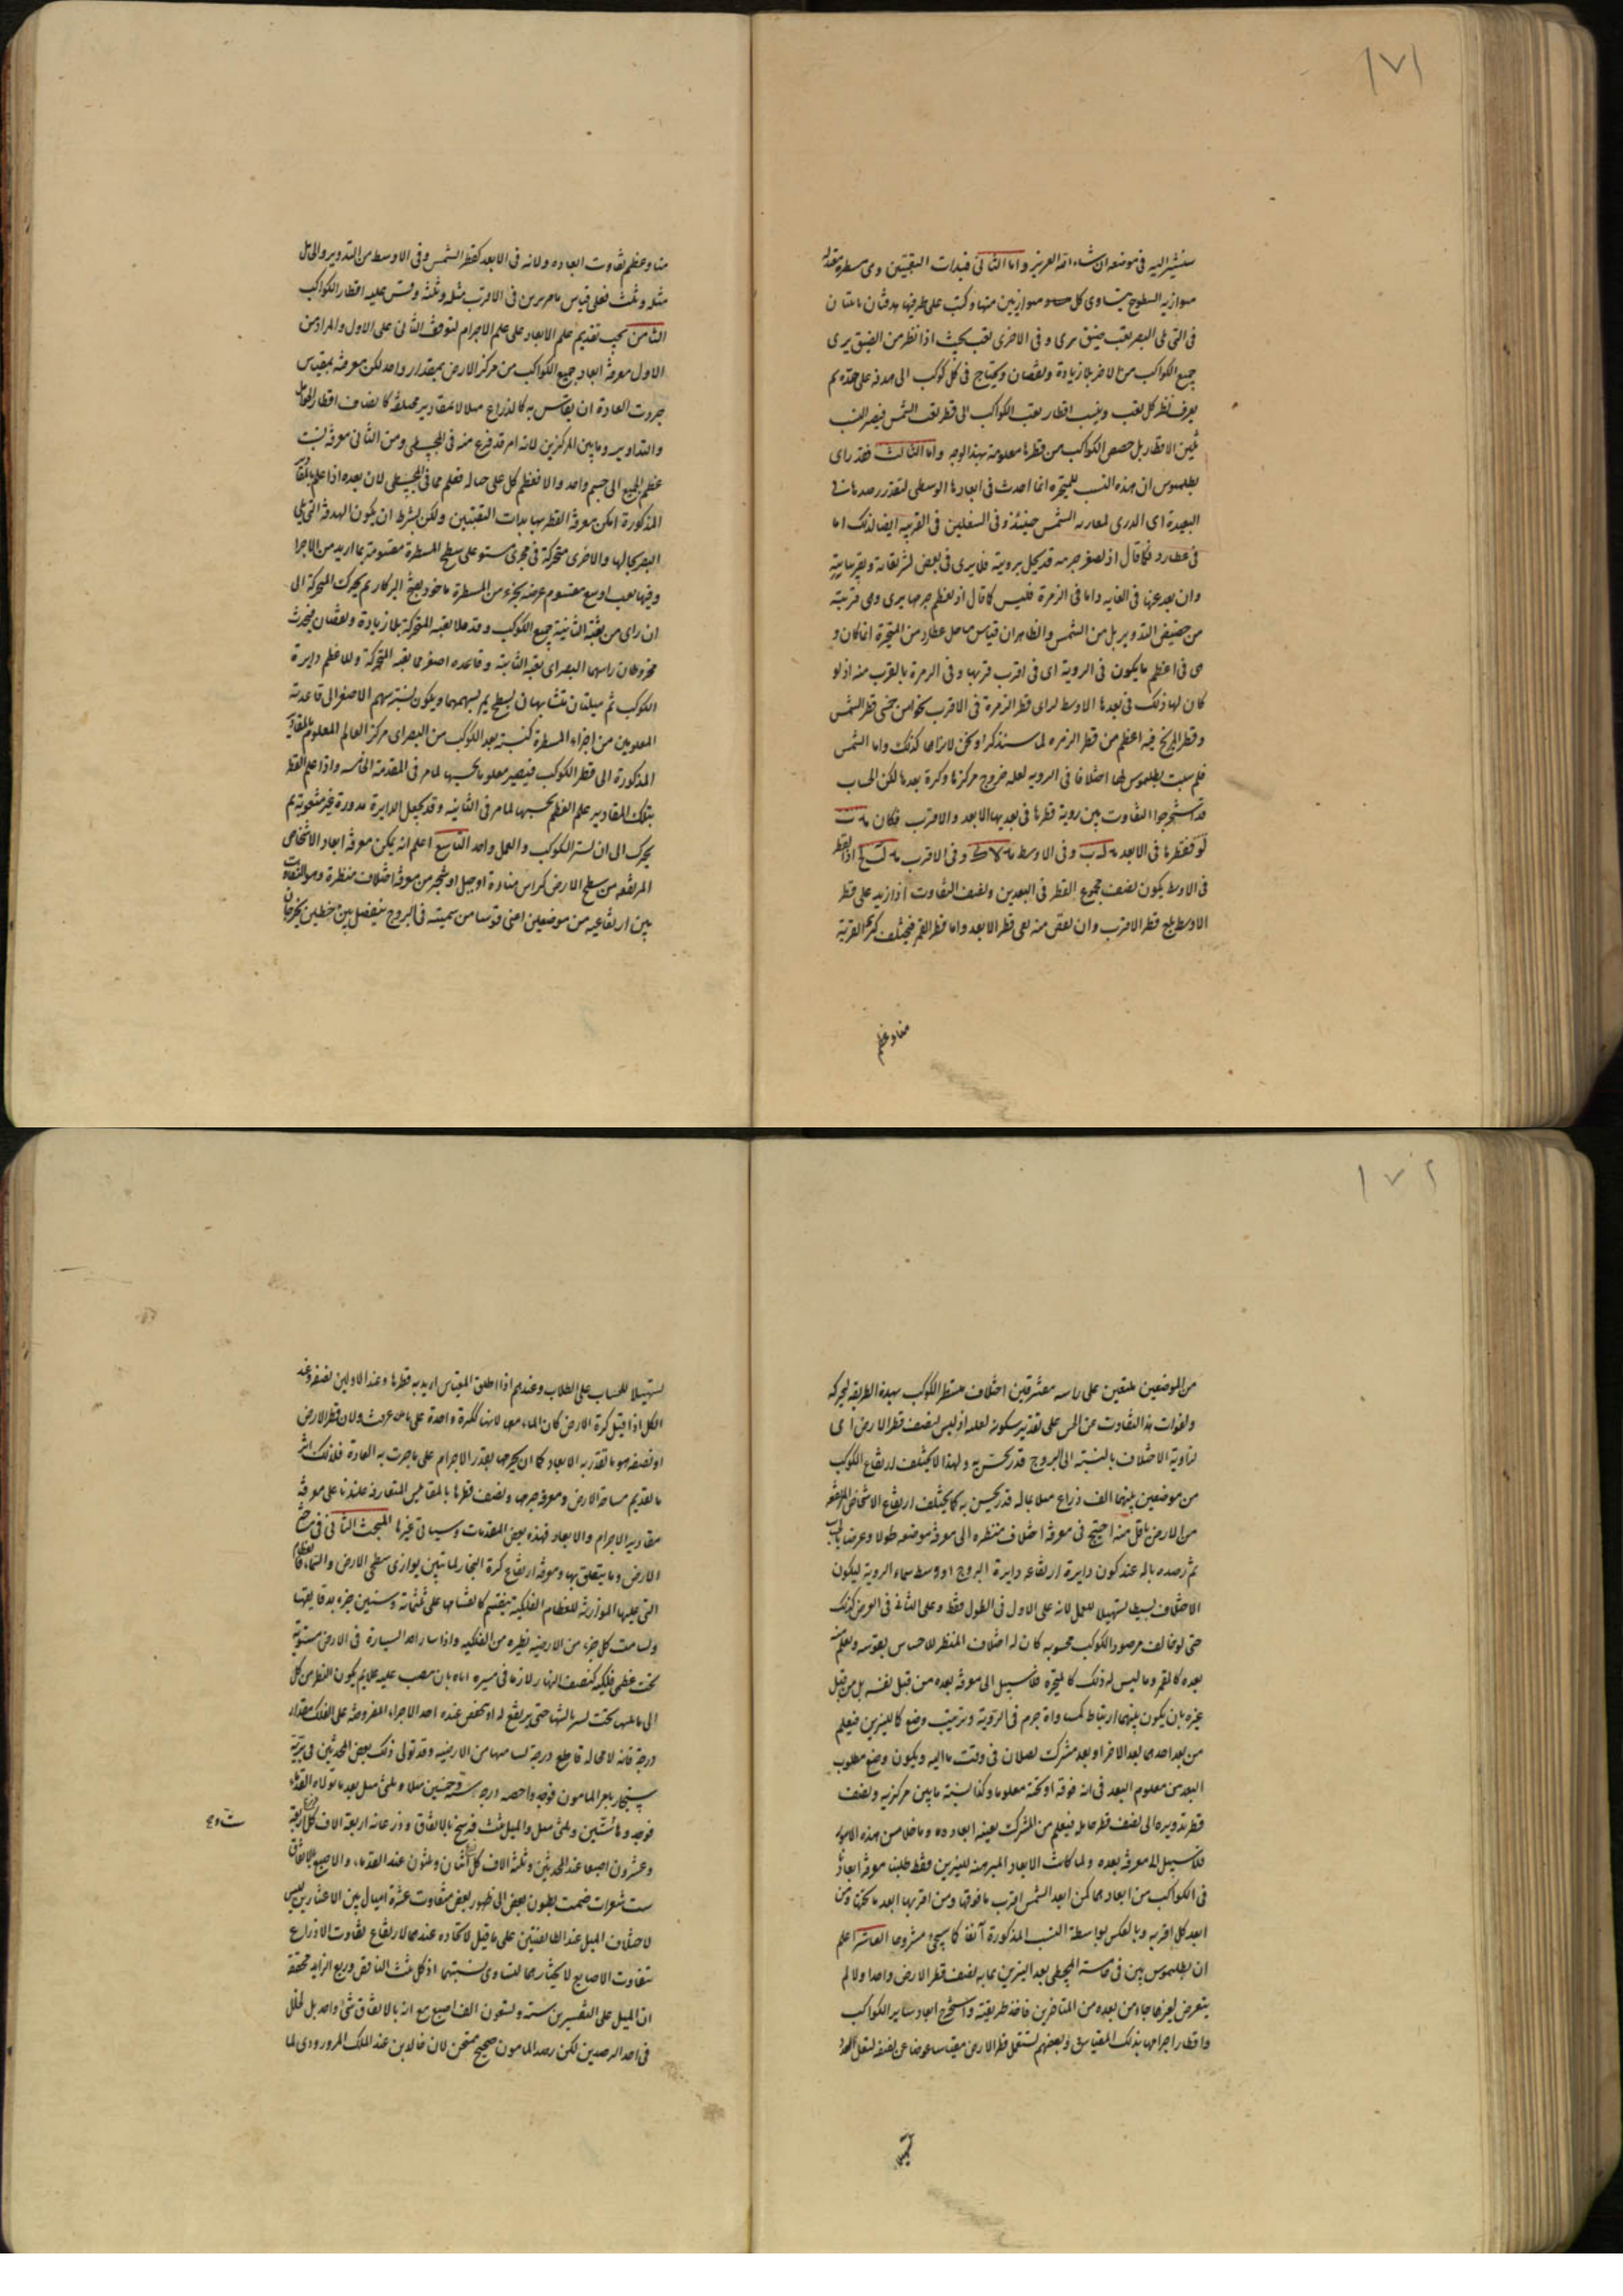 ١٧١
سنشير اليه فى موضعه ان شاء الله العزيز واما الثانى فبذات الثقبتين وهى مسطرة معتدلة
متوازية السطوح يتساوى كل متوازيين منها ركبت على طرفيها هدفتان
فى التى يلى البصر ثقب ضيق مرى و فى الاخرى ثقب بحيث اذا نظر من الضيق يرى
جميع الكواكب من الاخر بلا زيادة ونقصان ويحتاج فى كل كوكب الى هدفة على حدة ثم
يعرف قطر كل ثقب وينسب اقطار ثقب الكواكب الى قطر ثقب الشمس فيصير النسب
بين الاقطار بل حصص الكواكب من قطرها معلومة بهذا الوجه واما الثالث فقد راى
بطلميوس ان هذه النسب للمتحيرة انما احدث فى ابعادها الوسطى لتعذر رصدها فى
البعيدة اى الذرى لمقاربة الشمس حينئذ وفى السفليين فى القريبة ايضا لذلك اما
فى عطارد فكما قال اذ لصغر جرمه قد يحل برويته فلا يرى فى بعض تشريقاته وتغريباته
وان بعد عنها فى الغاية واما فى الزهرة فليس كما قال اذ لعظم جرمها يرى وهى قريبة
من حضيض التدوير بل من الشمس والظاهر ان قياس ما حل عطارد من المتحيرة انما كان و
هى فى اعظم ما يكون فى الروية اى فى اقرب قربها وفى الزهرة بالقرب منه اذ لو
كان لها ذلك فى بعدها الاوسط لراى قطر الزهرة فى الاقرب نحوا من خمس قطر الشمس
وقطر المريخ فيه اعظم من قطر الزهرة لما سنذكر او نحن لا نراهما كذلك واما الشمس
فلم يثبت بطلميوس لها اختلافا فى الروية لعله خروج مركزها وكرة بعدها لكن الحساب
قد استخرجوا التفاوت بين روية قطرها فى بعديها الابعد والاقرب فكان
فقطرها فى الابعد وفى الاوسط وفى الاقرب اذ القطر
فى الاوسط يكون نصف مجموع القطر فى البعدين ونصف التفاوت اذا زيد على قطر
الاوسط بلغ قطر الاقرب وان نقص منه بقى قطر الابعد واما قطر القمر فيختلف كرته القريبة
منا وعظم
منا وعظم تفاوت ابعاده ولانه فى الابعد كقطر الشمس وفى الاوسط من التدوير والحامل
مثله وثلث فعلى قياس ما مر يرى فى الاقرب مثله وثلثه وقس عليه اقطار الكواكب
الثامن يجب تقديم علم الابعاد على علم الاجرام لتوقف الثانى على الاول والمراد من
الاول معرفة ابعاد جميع الكواكب من مركز الارض بمقدار واحد لكن معرفته بمقياس
جروت العادة ان يقاس به كالذراع مثلا لا بمقادير مختلفة كانصاف اقطار الحوامل
والتداوير وما بين المركزين لانه امر قد فرغ منه فى المجسطى ومن الثانى معرفة نسبة
عظم الجميع الى جسم واحد والا فعظم كل على حاله فعلم مما فى المجسطى لان بعده اذا علم بالمقادير
المذكورة امكن معرفة القطر بها بذات الثقبتين ولكن بشرط ان يكون الهدفة التى يلى
البصر بحالها والاخرى متحركة فى مجرى مستو على سطح المسطرة مقسومة بما اريد من الاجزا
وفيها ثقب اوسع مقسوم عرضه بجزء من المسطرة ماخوذ بفتح البركار ثم يحرك المتحركة الى
ان راى من ثقبة الثانية جميع الكوكب وقد ملا ثقبة المتحركة بلا زيادة ونقصان فيحدث
مخروطان راسهما البصر اى ثقبة الثابتة وقاعدة اصغرهما ثقبة المتحركة والاعظم دايرة
الكوكب ثم مثلثان متشابهان بسطح يمر بسهمهما ويكون نسبة سهم الاصغر الى قاعدته
المعلومين من اجزاء المسطرة كنسبة بعد الكوكب من البصر اى مركز العالم المعلوم بالمقادير
المذكورة الى قطر الكوكب فيصير معلوما بحسبها لما مر فى المقدمة الخامسة واذا علم القطر
بتلك المقادير علم العظم بحسبها لما مر فى الثانية وقد يجعل الدايرة مدورة غير مثقوبة ثم
يحرك الى ان يستر الكوكب والعمل واحد التاسع اعلم انه يمكن معرفة ابعاد الاشخاص
المرتفعة من سطح الارض كراس منارة او جبل او شجر من معرفة اختلاف منظره وهو التفاوت
بين ارتفاعيه من موضعين اعنى قوسا من سميته فى البروج ينفصل بين خطين يخرجان
١٧٢
من الموضعين ملتقين على راسه مفترقين اختلاف منظر الكوكب بهذه الطريقة لحركته
ولفوات هذا التفاوت عن الحس على تقدير سكونه لعله اذ ليس لنصف قطر الارض اى
لزاوية الاختلاف بالنسبة الى البروج قدر يحس به ولهذا لا يختلف ارتفاع الكوكب
من موضعين بينهما الف ذراع مثلا ماله قدر يحس به كما يختلف ارتفاع الاشخاص المرتفعة
من الارض باقل منه احتيج فى معرفة اختلاف منظره الى معرفة موضعه طولا وعرضا بالحساب
ثم رصده باله عند كون دايرة ارتفاعه دايرة البروج او وسط سماء الروية ليكون
الاختلاف بسيطا تسهيلا للعمل لانه على الاول فى الطول فقط وعلى الثانى فى العرض كذلك
حتى لو خالف مرصود الكوكب محسوبه كان له اختلاف المنظر للاحساس بقوسه ويعلم منه
بعده كالقمر وما ليس له ذلك كالمتحيرة فلا سبيل الى معرفة بعده من قبل نفسه بل من قبل
غيره بان يكون بينهما ارتباط كمساواة جرم فى الروية وترتيب وضع كالنيرين فيعلم
من بعد احدهما بعد الاخر او بعد مشترك يصلان فى وقت ما اليه ويكون وضع مطلوب
البعد من معلوم البعد فى انه فوقه او تحته معلوما وكذا نسبة ما بين مركزيه ونصف
قطر تدويره الى نصف قطر حامله فيعلم من المشترك بعينه ابعاده وما خلا من هذه الامور
فلا سبيل الى معرفة بعده ولما كانت الابعاد المبرهنة للنيرين فقط طلبنا معرفة ابعاد
فى الكواكب من ابعادهما لكن ابعد الشمس اقرب ما فوقها ومن اقربها ابعد ما تحتها ومن
ابعد كل اقربه وبالعكس بواسطة النسب المذكورة آنفا كما سيجئ مشروحا العاشر اعلم
ان بطلميوس بين فى خامسة المجسطى بعد النيرين بما به نصف قطر الارض واحدا ولم
يتعرض لغيرهما جاء من بعده من المتاخرين فاخذ طريقته واستخرج ابعاد ساير الكواكب
واقطار اجرامها بذلك المقياس وبعضهم يستعمل قطر الارض مقياسا عوضا عن نصفه لتقل العدد
تسهيلا للحساب على الطلاب وعندهم اذا اطلق المقياس اريد به قطرها وعند الاولين نصفه وعند
الكل اذا قيل كرة الارض كان الماء معها لانها كالكرة واحدة على ما عرفت ولان قطر الارض
او نصفه هو ما تقدر به الابعاد كما ان بجرمها يقدر الاجرام على ما جرت به العادة فلذلك اثر
ما تقديم مساحة الارض ومعرفة جرمها ونصف قطرها بالمقاييس المتعارفة عندنا على معرفة
مقادير الاجرام والابعاد فهذه بعض المقدمات وسياتى غيرها المبحث الثانى فى مساحة
الارض وما يتعلق بها ومعرفة ارتفاع كرة البخار لما تبين يوازى سطحى الارض والسماء فالعظام
التى عليها الموازية للعظام الفلكية ينقسم كانقسامها على ثلثمائة وستين جزء بدقايقها
ولسامت كل جزء من الارضية نظيره من الفلكية واذا سار احد السيارة فى الارض مستوية
تحت عظمى فلكية كنصف النهار لازما فى مسيره اياه بان نصب عليه علايم يكون النظر من كل
الى ما يليها تحت لسراشها حتى يرتفع له او ينخفض عنده احد الاجزاء المفروضة على الفلك مقدار
درجة فانه لا محاله قاطع درجة لسامتها من الارضية وقد تولى ذلك بعض المحدثين فى برية
سنجار بامر المامون فوجدوا حصة درجة ستة وخمسين ميلا وثلثى ميل بعد ما تولاه القدماء
فوجدوه مائتين وثلثى ميل والميل ثلث فرسخ بالاتفاق وذرعانه اربعة الاف كل اربعة
وعشرون اصبعا عند المحدثين وثلثة الاف كل اثنان وثلثون عند القدماء والاصبع بالاتفاق
ست شعيرات ضمت بطون بعض الى ظهور بعض متفاوت عشرة اميال بين الاعتبارين ليس
لاختلاف الميل عند الطائفتين على ما قيل لاتحاده عندهما لارتفاع تفاوت الاذراع
بتفاوت الاصابع لا يختارهما لتساوى نسبتهما اذ كل ثلث الناقص وربع الزايد محققة
ان الميل على التفسيرين ستة وتسعون الف اصبع مع انه بالاتفاق شئ واحد بل لخلل
فى احد الرصدين لكن رصد المامون صحيح ممتحن لان خالد بن عبد الملك المروروذى لما